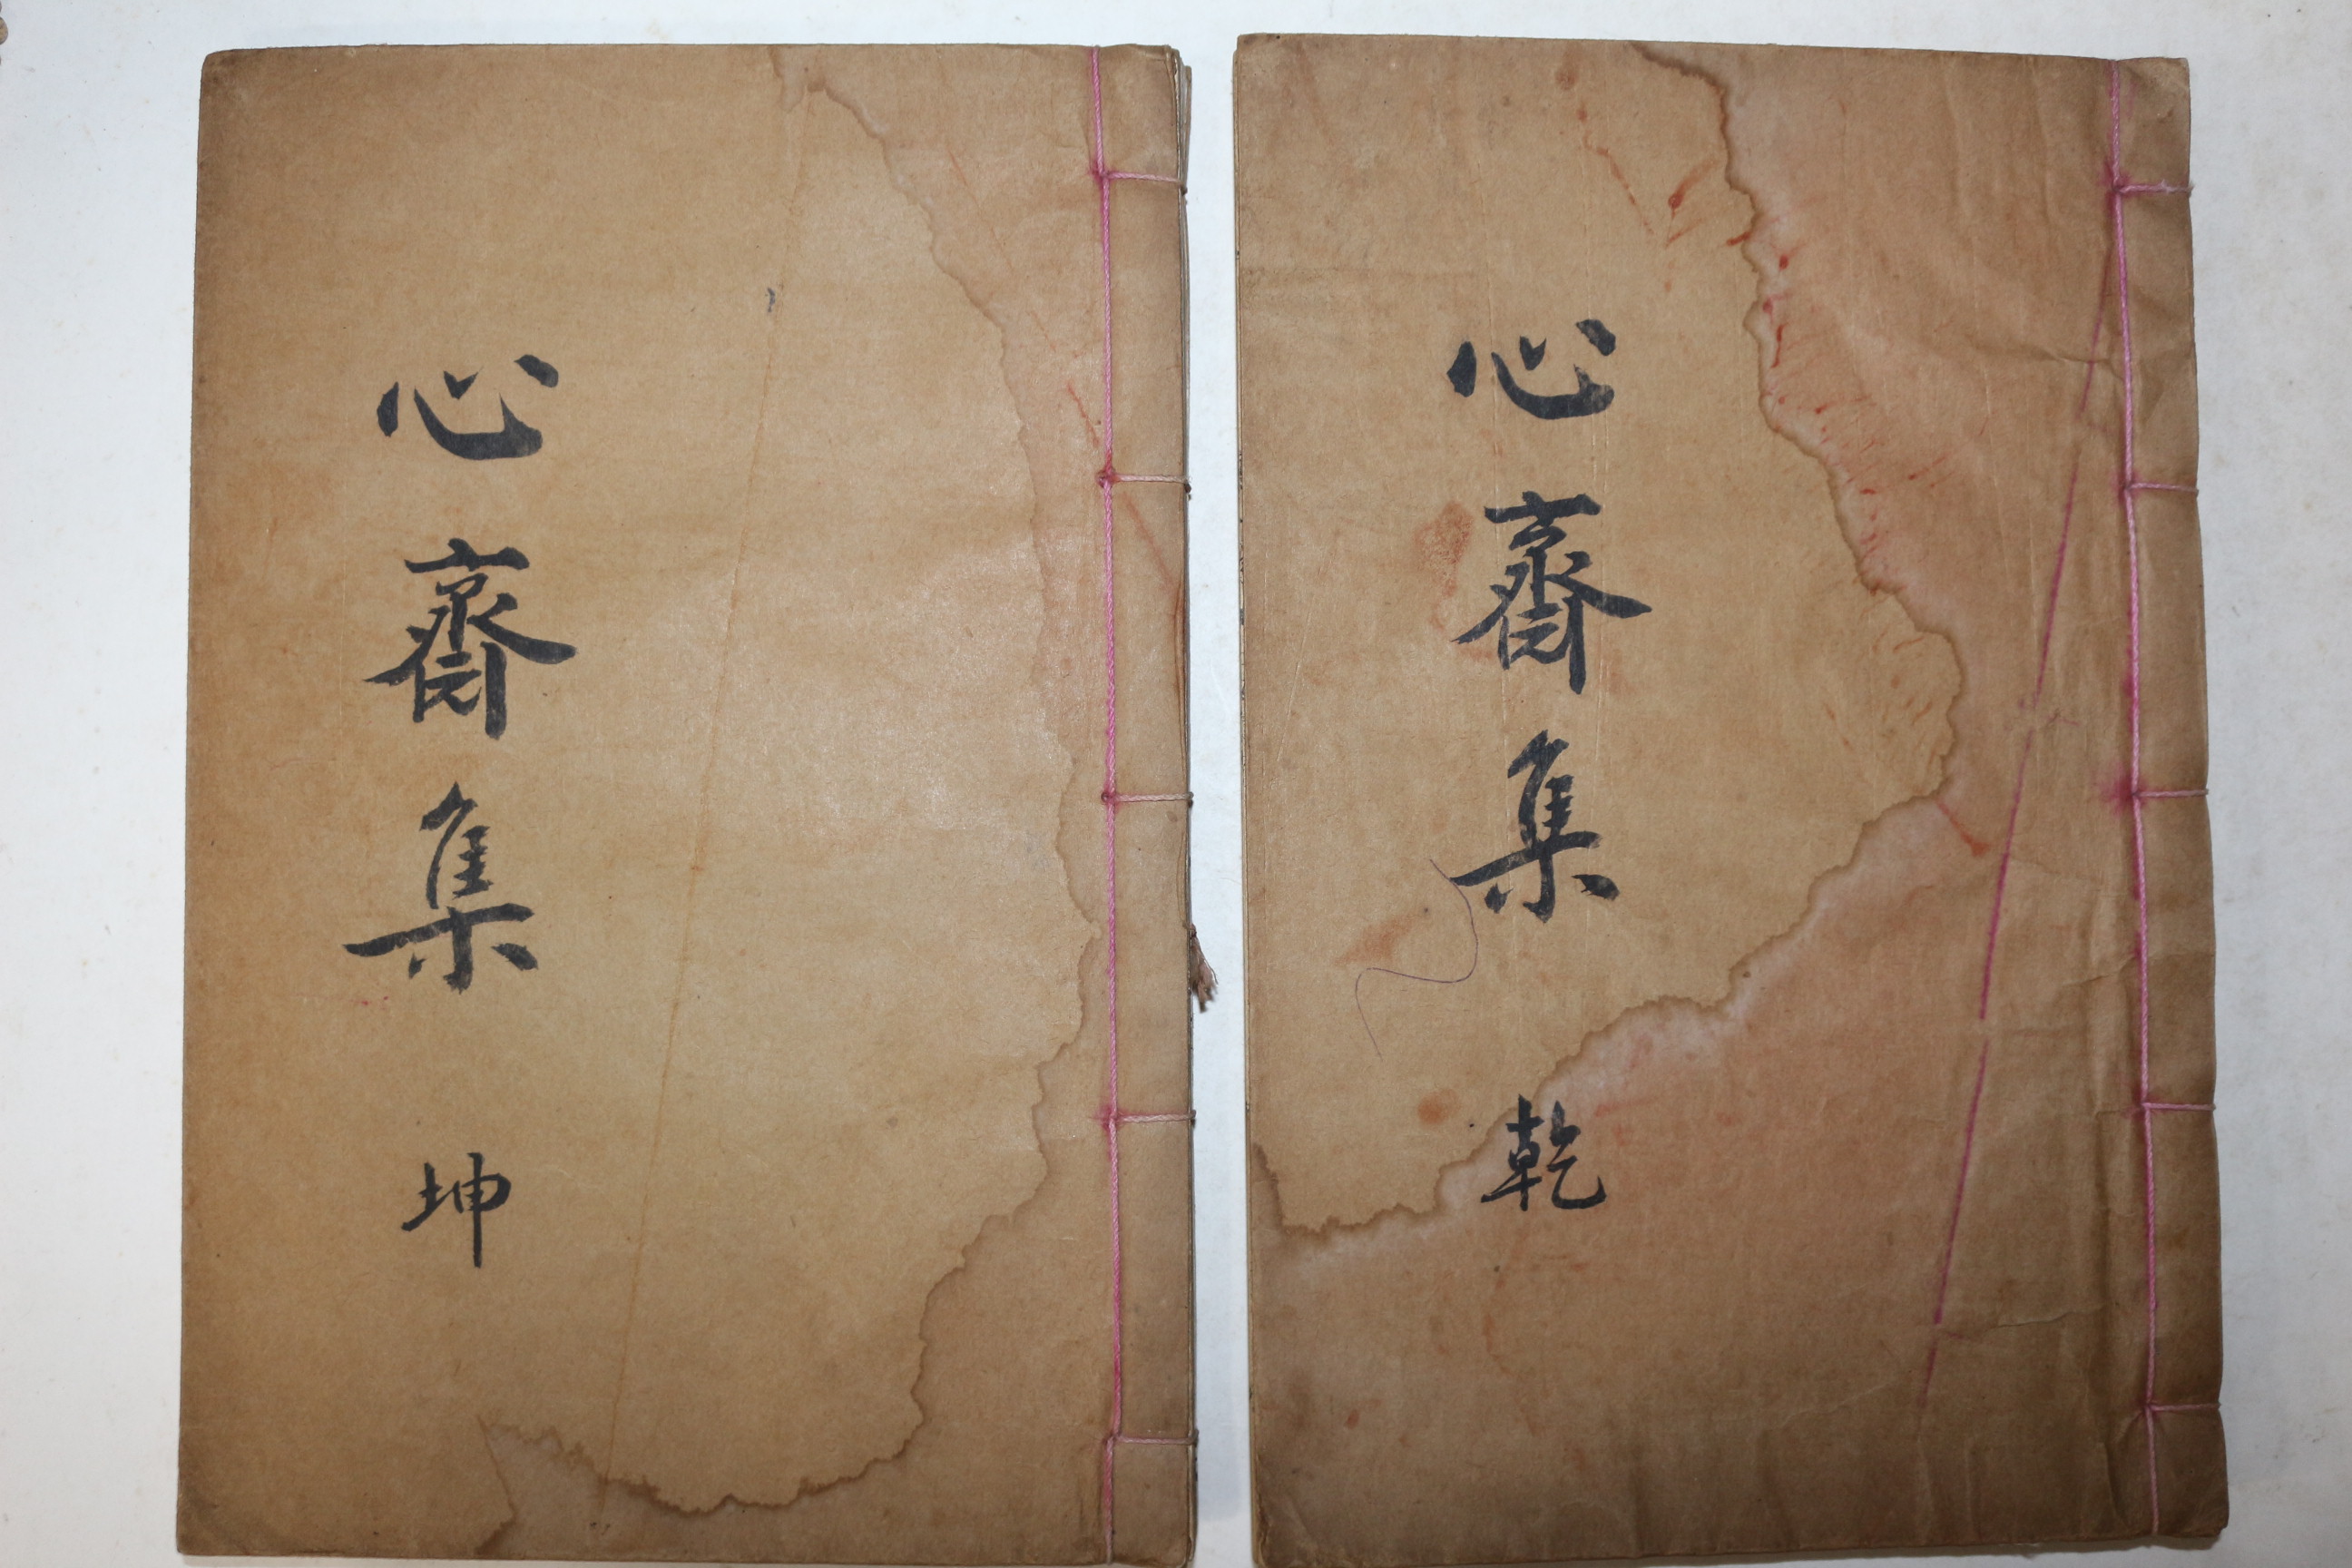 心齋集 乾
心齋集 坤